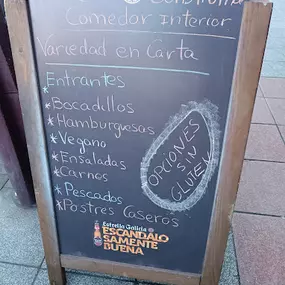 Comedor Interior
Variedad en Carta
* Entrantes
* Bocadillos
* Hamburguesas
* Vegano
* Ensaladas
* Carnes
* Pescados
* Postres Caseros
OPCIONES
SIN
GLUTEN
Estrella Galicia
ESCANDALO
SAMENTE
BUENA